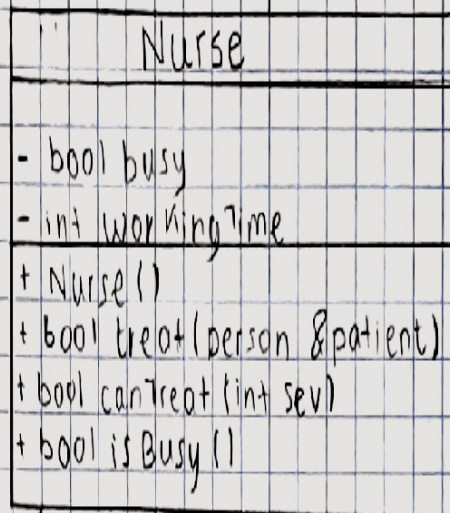 Nurse
- bool busy
- int workingTime
+ Nurse()
+ bool treat(person &patient)
+ bool canTreat(int sev)
+ bool isBusy()